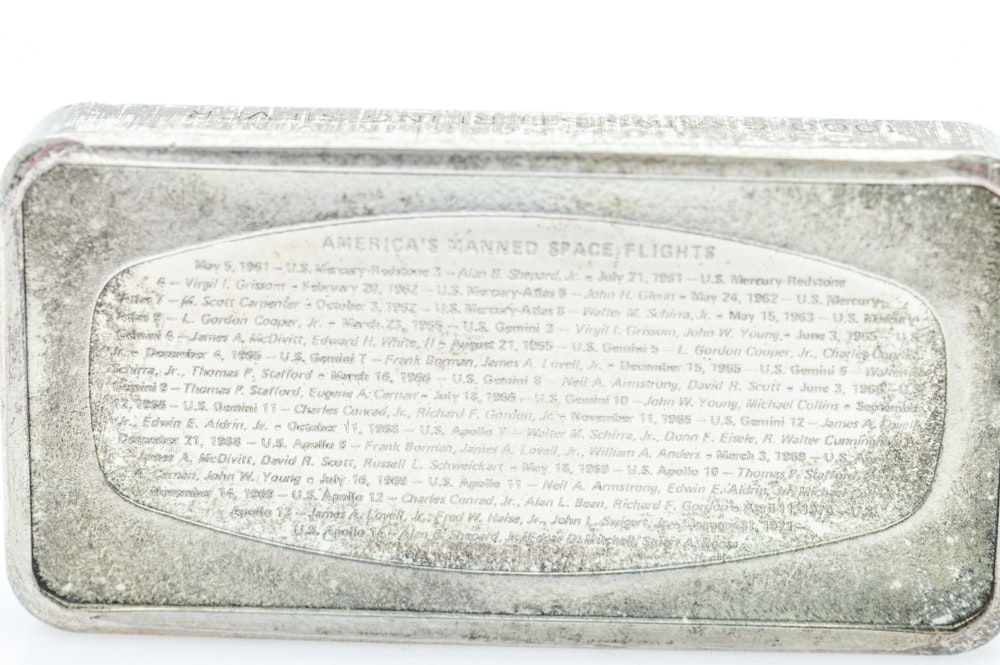 1000 GRAINS STERLING SILVER
AMERICA'S MANNED SPACE FLIGHTS
May 5, 1961 – U.S. Mercury-Redstone 3 – Alan B. Shepard, Jr. • July 21, 1961 – U.S. Mercury-Redstone
– Virgil I. Grissom • February 20, 1962 – U.S. Mercury-Atlas – John H. Glenn • May 24, 1962 – U.S. Mercury-
Atlas 7 – M. Scott Carpenter • October 3, 1962 – U.S. Mercury-Atlas 8 – Walter M. Schirra, Jr. • May 15, 1963 – U.S. Mercury-
Atlas 9 – L. Gordon Cooper, Jr. • March 23, 1965 – U.S. Gemini 3 – Virgil I. Grissom, John W. Young • June 3, 1965 – U.S.
Gemini 4 – James A. McDivitt, Edward H. White, II • August 21, 1965 – U.S. Gemini 5 – L. Gordon Cooper, Jr., Charles Conrad,
Jr. • December 4, 1965 – U.S. Gemini 7 – Frank Borman, James A. Lovell, Jr. • December 15, 1965 – U.S. Gemini 6 – Walter M.
Schirra, Jr., Thomas P. Stafford • March 16, 1966 – U.S. Gemini 8 – Neil A. Armstrong, David R. Scott • June 3, 1966 – U.S.
Gemini 9 – Thomas P. Stafford, Eugene A. Cernan • July 18, 1966 – U.S. Gemini 10 – John W. Young, Michael Collins • September
12, 1966 – U.S. Gemini 11 – Charles Conrad, Jr., Richard F. Gordon, Jr. • November 11, 1966 – U.S. Gemini 12 – James A. Lovell,
Jr., Edwin E. Aldrin, Jr. • October 11, 1968 – U.S. Apollo 7 – Walter M. Schirra, Jr., Donn F. Eisele, R. Walter Cunningham •
December 21, 1968 – U.S. Apollo 8 – Frank Borman, James A. Lovell, Jr., William A. Anders • March 3, 1969 – U.S. Apollo
James A. McDivitt, David R. Scott, Russell L. Schweickart • May 18, 1969 – U.S. Apollo 10 – Thomas P. Stafford,
Cernan, John W. Young • July 16, 1969 – U.S. Apollo 11 – Neil A. Armstrong, Edwin E. Aldrin, Jr., Michael
November 14, 1969 – U.S. Apollo 12 – Charles Conrad, Jr., Alan L. Bean, Richard F. Gordon • April 11, 1970 – U.S.
Apollo 13 – James A. Lovell, Jr., Fred W. Haise, Jr., John L. Swigert, Jr. • January 31, 1971 –
U.S. Apollo 14 – Alan B. Shepard, Jr., Edgar D. Mitchell, Stuart A. Roosa